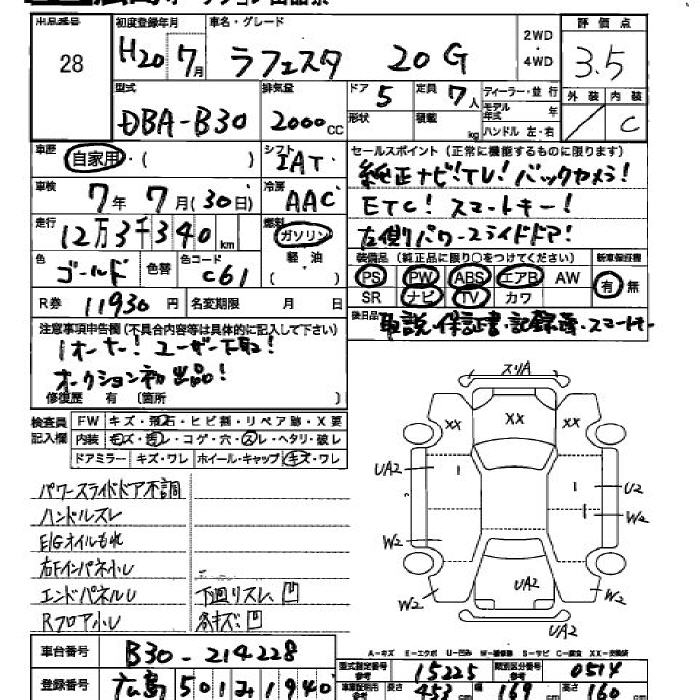 出品番号 28
初度登録年月 H20 7月
車名・グレード ラフェスタ 20G
2WD・4WD
評価点 3.5
外装 / 内装 C
型式 DBA-B30
排気量 2000cc
ドア 5 形状
定員 7人 積載 kg
ディーラー・並行
モデル年式 年
ハンドル 左・右
車歴 自家用・( )
シフト IAT
セールスポイント(正常に機能するものに限ります)
純正ナビ!TV!バックカメラ!
ETC!スマートキー!
左側パワースライドドア!
車検 7年7月(30日)
冷房 AAC
走行 12万3千340km
燃料 ガソリン 軽油 ( )
色 ゴールド 色替
色コード C61
装備品(純正品に限り○をつけてください)
PS PW ABS エアB AW
SR ナビ TV カワ
新車保証書 有 無
R券 11930円 名変期限 月 日
後日品 取説・保証書・記録簿・スマートキー
注意事項申告欄(不具合内容等は具体的に記入して下さい)
1オーナー!ユーザー下取!
オークション初出品!
修復歴 有 〔箇所 〕
検査員記入欄
FW キズ・飛石・ヒビ割・リペア跡・X要
内装 モズ・汚レ・コゲ・穴・スレ・ヘタリ・破レ
ドアミラー キズ・ワレ ホイール・キャップ キズ・ワレ
パワースライドドア不調
ハンドルスレ
E/Gオイルもれ
右FインパネルU
エンドパネルU 下回りスレ、凹
RフロアU キズ凹
スリA
XX XX XX
UA2 l l U2
W2 l W2
W2 UA2 W2
UA2
A-キズ E-エクボ U-凹み W-補修跡 S-サビ C-腐食 XX-交換済
車台番号 B30-214228
登録番号 広島501み1940
型式指定番号 参考 15225
類別区分番号 参考 0514
長さ 453cm 幅 169cm 高さ 160cm